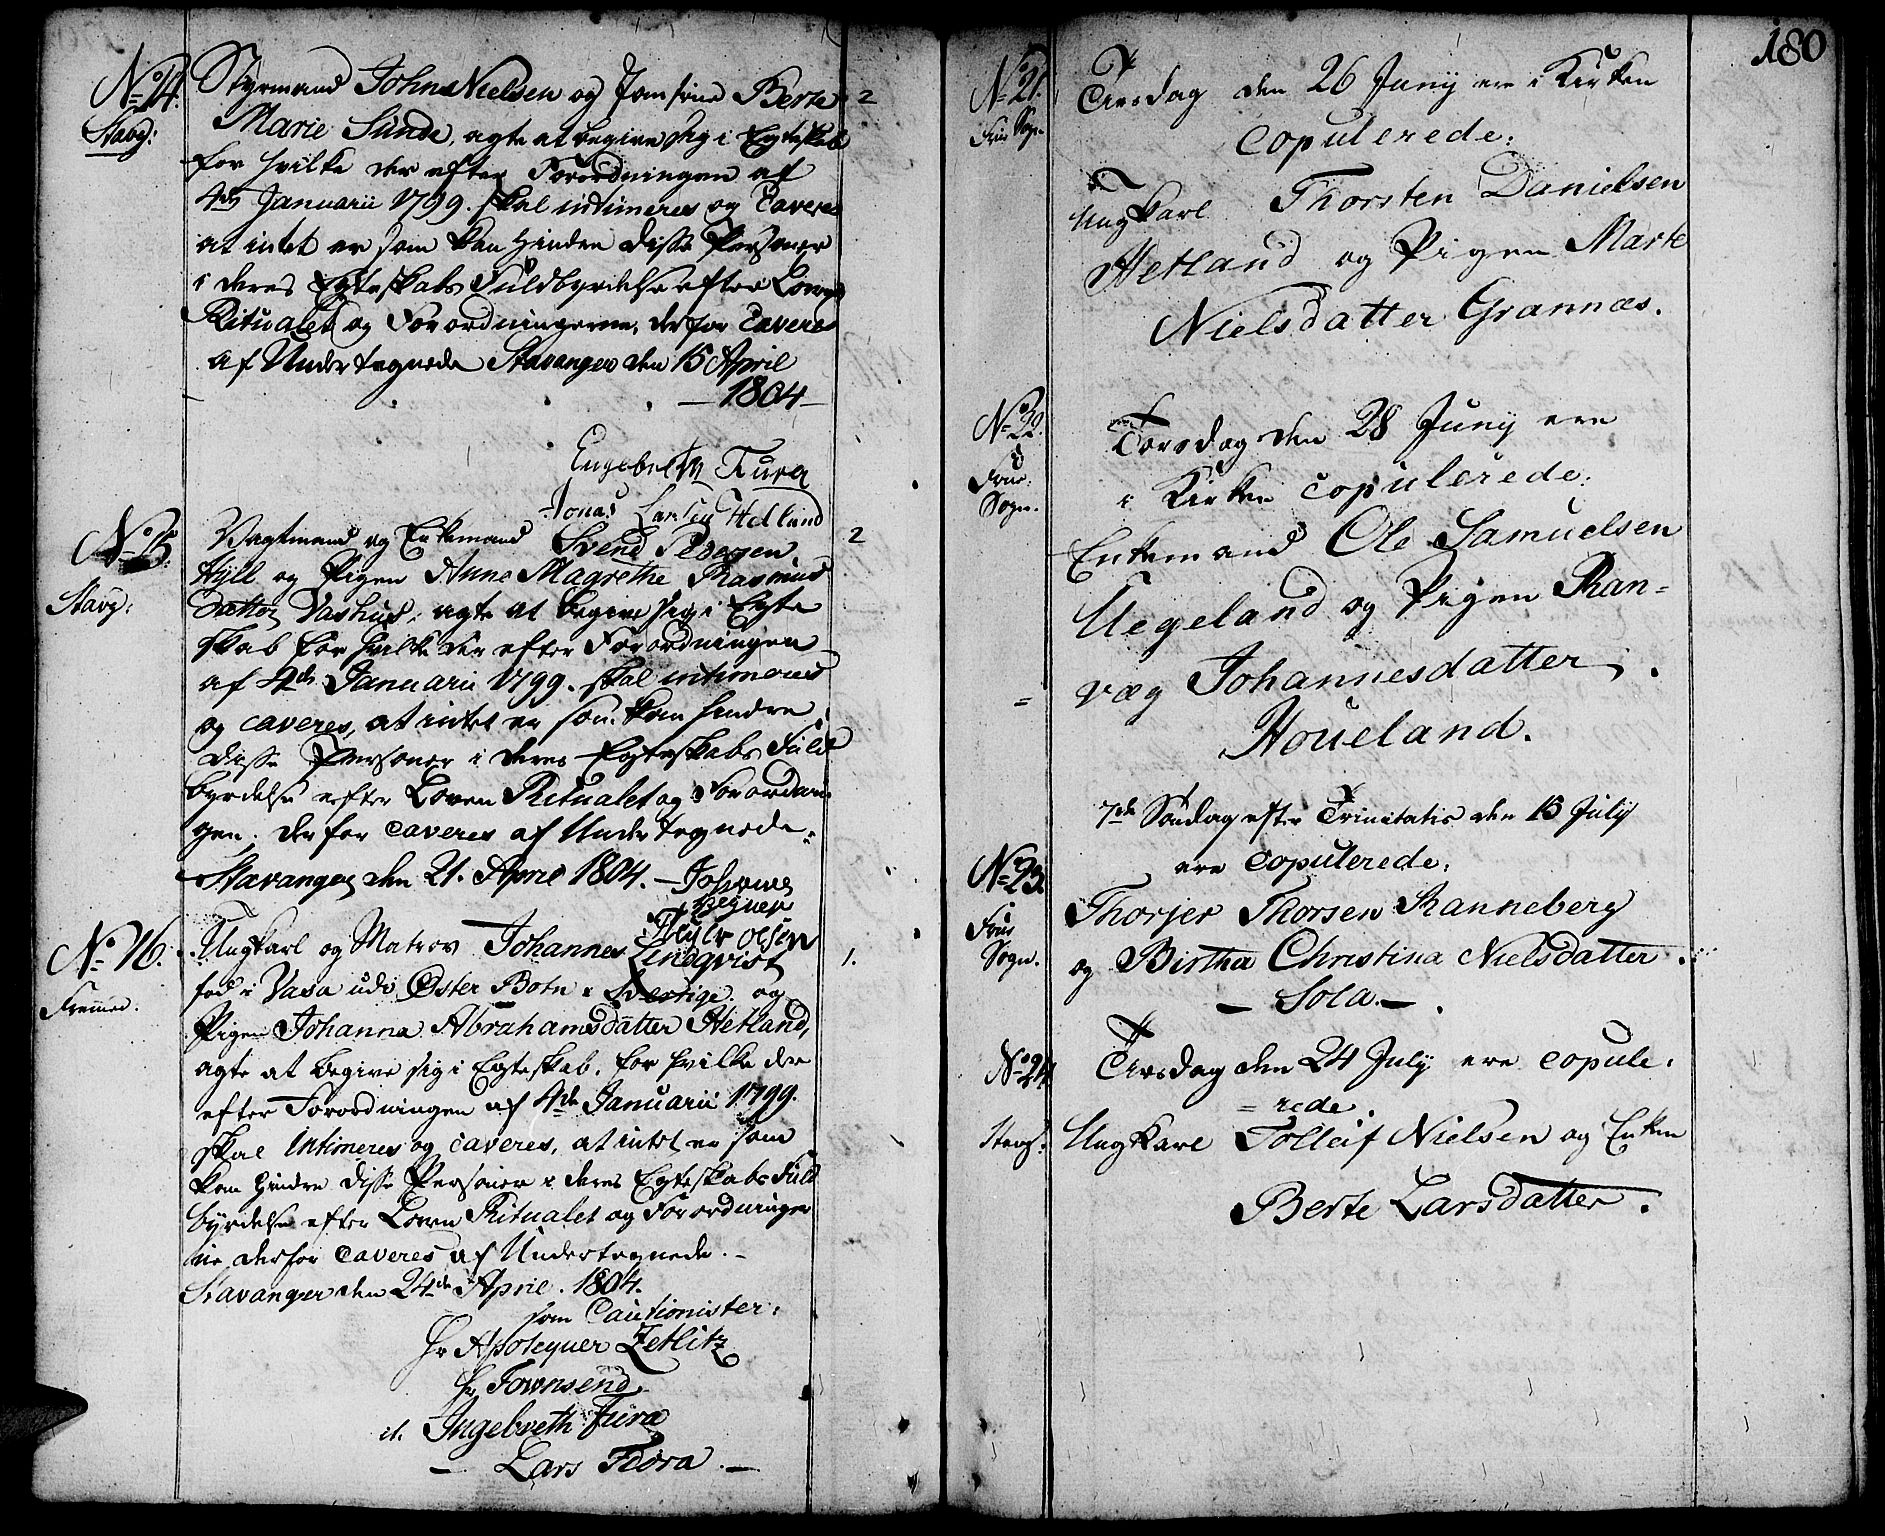 No 14.
Stavg:
Styrmand Johns Nielsen og Jomfrue Berte 2
Marie Sunde, agte at begive sig i Egteskab
for hvilke der efter Forordningen af
4de Januarii 1799. skal intimeres og Caveres
at intet er som kan hindre disse Personer
i deres Egteskabs Fuldbyrdelse efter Loven
Ritualet og Forordningerne, derfor Caveres
af Undertegnede Stavanger den 15 April
— 1804 —
Engebreth Fura
Jonas Larsen Hetland
No 15
Stavg:
Vagtmand og Enkemand Svend Pedersen 2
Hÿll og Pigen Anne Magrethe Rasmus
datter Vashus, agte at begive sig i Egte
skab for hvilke der efter Forordningen
af 4de Januarii 1799. skal intimeres
og caveres, at intet er som kan hindre
disse Personer i deres Egteskabs Fuld
byrdelse efter Loven Ritualet og Forordnin
gen. derfor caveres af Undertegnede.
Stavanger den 21. April 1804. — Johannes
olsen
No 16.
Fremmed.
Ungkarl og Matros Johannes Lindqvist 1.
fød i Vasa udi Øster Botn i Sverrige. og
Pigen Johanna Abrahamsdatter Hetland,
agte at begive sig i Egteskab. for hvilke der
efter Forordningen af 4de Januarii 1799.
skal Intimeres og caveres, at intet er som
kan hindre disse Personer i deres Egteskabs Fuld
byrdelse efter Loven Ritualet og Forordninger
ne derfor Caveres af Undertegnede.—
Stavanger den 24de April. 1804.
som Cautionister:
Hr Apotequer Zetlitz
Hr Townsend
it. Ingebreth Fura
— Lars Flora. —
180
No 21.
Frue Sogn.
Tirsdag den 26 Junÿ ere i Kirken
copulerede:
Ungkarl Thorsten Danielsen
Hetland og Pigen Marte
Nielsdatter Grannæs.
No 22.
Frue.
Sogn.
Torsdag den 28 Junÿ ere
i Kirken copulerede:
Enkemand Ole Samuelsen
Uegeland og Pigen Ran=
= væg Johannesdatter,
Houeland.
7de Søndag efter Trinitatis den 15 Julÿ
ere copulerede.
No 23.
Frue
Sogn.
Thorjer Thorsen Ranneberg
og Birtha Christina Nielsdatter.
— Sola. — .
No 24
Stavg:
Tirsdag den 24 Julÿ ere copule:
= rede.
Ungkarl Tolleif Nielsen og Enken
Berte Larsdatter.